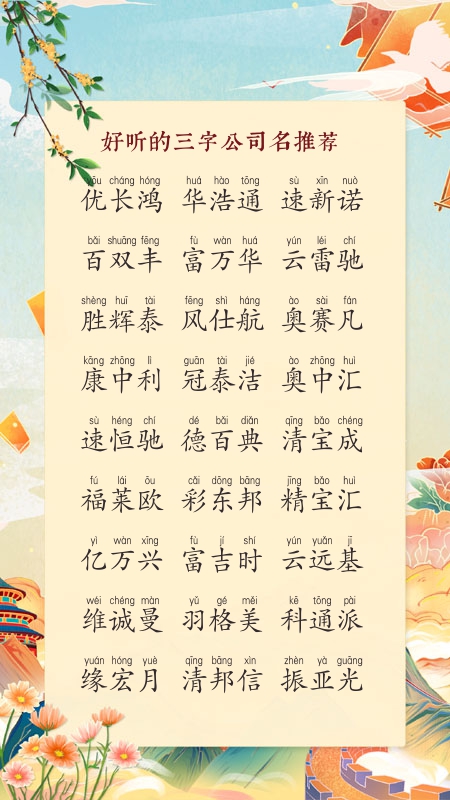 好听的三字公司名推荐
yōu cháng hóng huá hào tōng sù xīn nuò
优长鸿 华浩通 速新诺
bǎi shuāng fēng fù wàn huá yún léi chí
百双丰 富万华 云雷驰
shèng huī tài fēng shì háng ào sài fán
胜辉泰 风仕航 奥赛凡
kāng zhōng lì guān tài jié ào zhōng huì
康中利 冠泰洁 奥中汇
sù héng chí dé bǎi diǎn qīng bǎo chéng
速恒驰 德百典 清宝成
fú lái ōu cǎi dōng bāng jīng bǎo huì
福莱欧 彩东邦 精宝汇
yì wàn xīng fù jí shí yún yuǎn jī
亿万兴 富吉时 云远基
wéi chéng màn yǔ gé měi kē tōng pài
维诚曼 羽格美 科通派
yuán hóng yuè qīng bāng xìn zhèn yà guāng
缘宏月 清邦信 振亚光